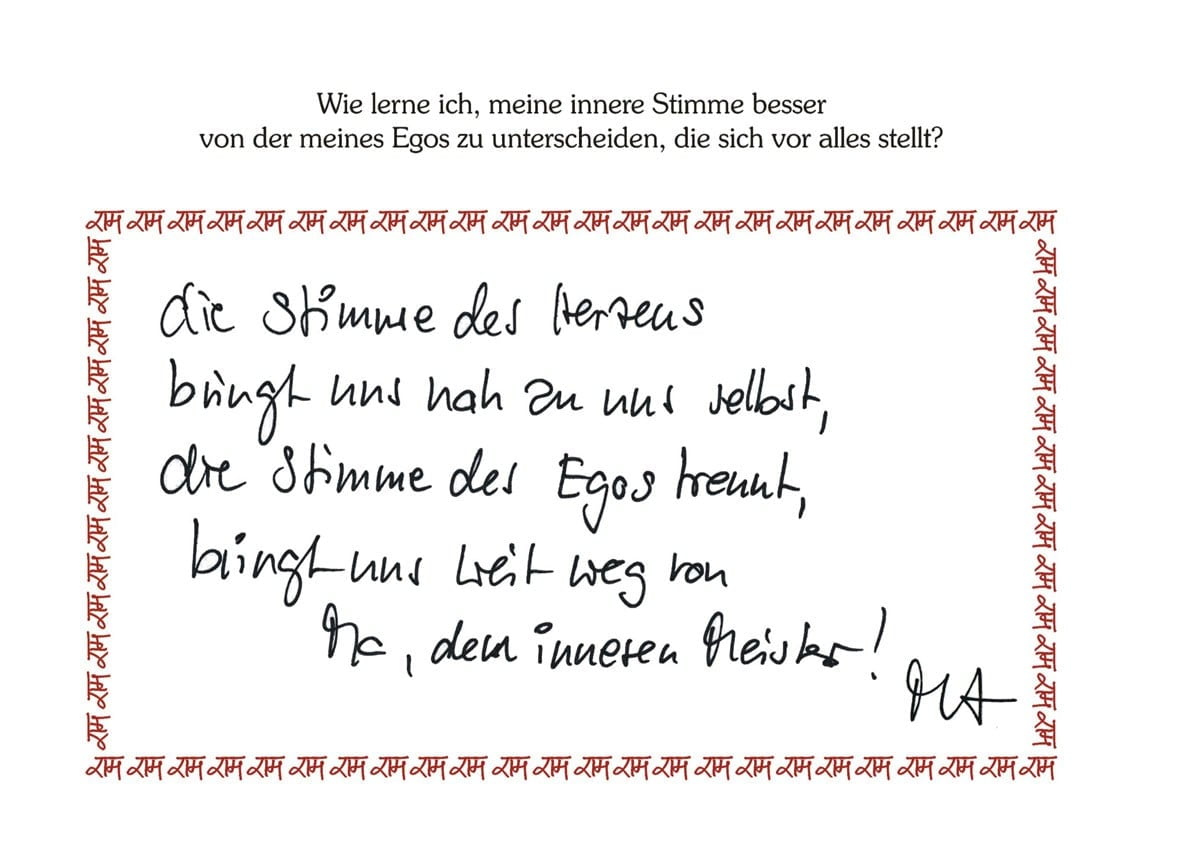 Wie lerne ich, meine innere Stimme besser
von der meines Egos zu unterscheiden, die sich vor alles stellt?
राम राम राम राम राम राम राम राम राम राम राम राम राम राम राम राम राम राम राम राम राम राम राम राम
die Stimme des Herzens
bringt uns nah zu uns selbst,
die Stimme des Egos trennt,
bringt uns weit weg von
Mc, dem inneren Meister!
MA
राम राम राम राम राम राम राम राम राम राम राम राम राम
राम राम राम राम राम राम राम राम राम राम राम राम राम
राम राम राम राम राम राम राम राम राम राम राम राम राम राम राम राम राम राम राम राम राम राम राम राम